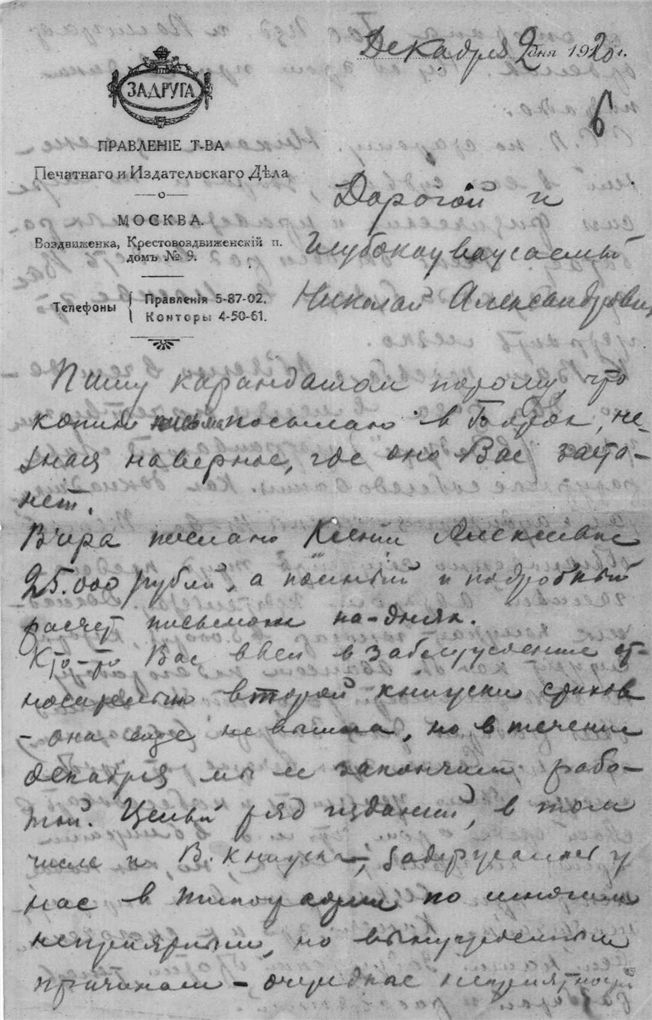 Декабря 2 дня 1920 г.
6
ЗАДРУГА
ПРАВЛЕНІЕ Т-ВА
Печатнаго и Издательскаго Дѣла
МОСКВА.
Воздвиженка, Крестовоздвиженскій п.
домъ № 9.
Телефоны { Правленія 5-87-02.
Конторы 4-50-61.
Дорогой и
Глубокоуважаемый
Николай Александрович
Пишу карандашом потому, что
копию письма посылаю в , не
зная наверное, где оно Вас заста-
нет.
Вчера послано Ксении Алексеевне
25.000 рублей, а полный и подробный
расчет письмом на-днях.
Кто-то Вас ввел в заблуждение от-
носительно второй книжки стихов
– она еще не вышла, но в течение
декабря мы ее закончим рабо-
той. Целый ряд изданий, в том
числе и В. книжка, задержались у
нас в типографии по многим
неприятным, но вынужденным
причинам – очередные неприятности